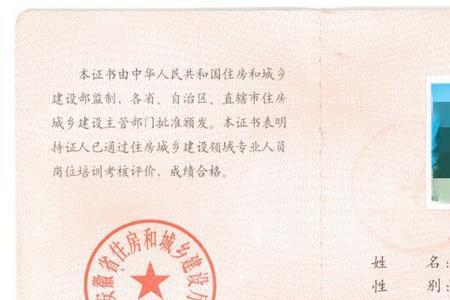 本证书由中华人民共和国住房和城乡
建设部监制，各省、自治区、直辖市住房
城乡建设主管部门批准颁发。本证书表明
持证人已通过住房城乡建设领域专业人员
岗位培训考核评价，成绩合格。
安徽省住房和城乡建设厅
姓 名：
性 别：